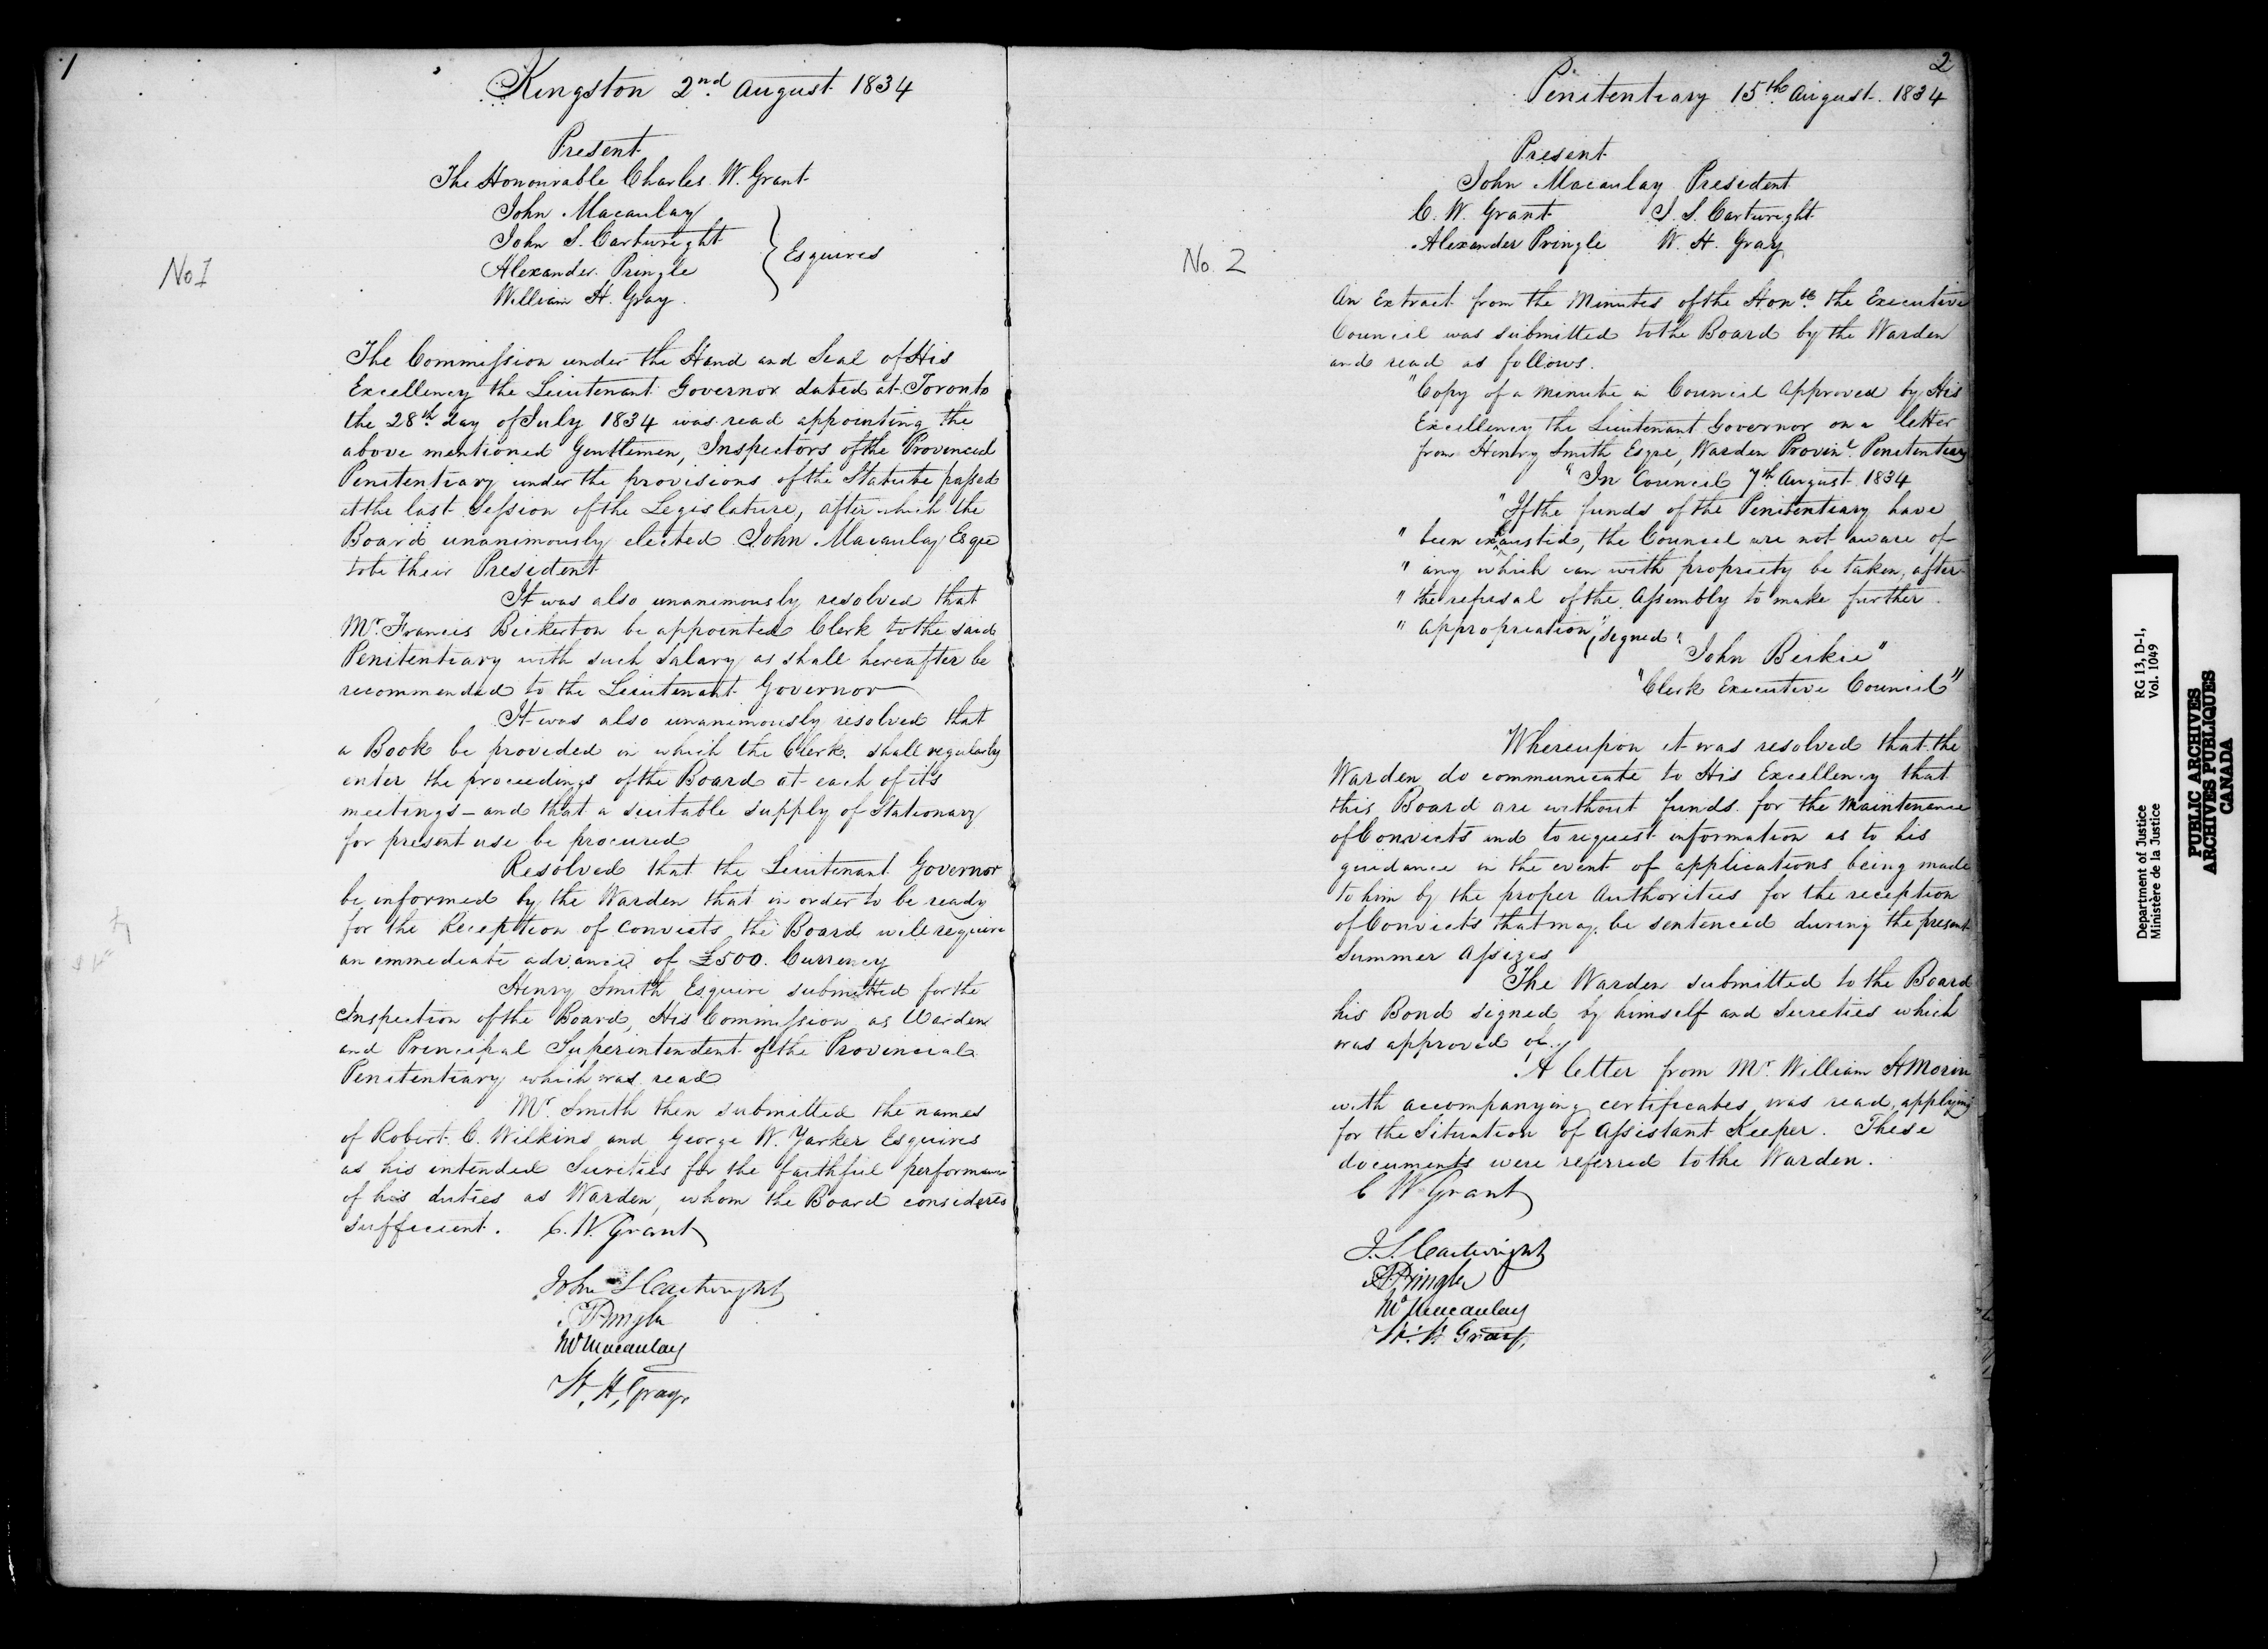 1
Kingston 2nd August 1834
Present
The Honourable Charles W. Grant
John Macaulay
John S. Cartwright
Alexander Pringle
William H. Gray
} Esquires
No 1
The Commission under the Hand and Seal of His
Excellency the Lieutenant Governor dated at Toronto
the 28th day of July 1834 was read appointing the
above mentioned Gentlemen, Inspectors of the Provincial
Penitentiary under the provisions of the Statute passed
at the last Session of the Legislature, after which the
Board unanimously elected John Macaulay Esqre
to be their President
It was also unanimously resolved that
Mr. Francis Bickerton be appointed Clerk to the said
Penitentiary with such Salary as shall hereafter be
recommended to the Lieutenant Governor
It was also unanimously resolved that
a Book be provided in which the Clerk shall regularly
enter the proceedings of the Board at each of it's
meetings – and that a suitable supply of Stationary
for present use be procured
Resolved that the Lieutenant Governor
be informed by the Warden that in order to be ready
for the Reception of Convicts the Board will require
an immediate advance of £500. Currency
Henry Smith Esquire submitted for the
Inspection of the Board, His Commission as Warden
and Principal Superintendent of the Provincial
Penitentiary which was read
Mr. Smith then submitted the names
of Robert C. Wilkins and George W. Yarker Esquires
as his intended Sureties for the faithful performance
of his duties as Warden, whom the Board considers
sufficient. C. W. Grant
John S Cartwright
A Pringle
Macaulay
W. H. Gray
2
Penitentiary 15th August 1834
Present
John Macaulay President
C. W. Grant J. S. Cartwright
Alexander Pringle W. H. Gray
No. 2
An Extract from the Minutes of the Honble the Executive
Council was submitted to the Board by the Warden
and read as follows.
"Copy of a Minute in Council Approved by His
Excellency the Lieutenant Governor on a letter
from Henry Smith Esqre, Warden Provinl Penitentiary
"In Council 7th August 1834
"If the funds of the Penitentiary have
" been exhausted, the Council are not aware of
" any which can with propriety be taken, after
" the refusal of the Assembly to make further
" appropriation" (signed "
John Beikie"
"Clerk Executive Council"
Whereupon it was resolved that the
Warden do communicate to His Excellency that
this Board are without funds for the Maintenance
of Convicts and to request information as to his
guidance in the event of applications being made
to him by the proper Authorities for the reception
of Convicts that may be sentenced during the present
Summer Assizes
The Warden submitted to the Board
his Bond signed by himself and Sureties which
was approved of
A letter from Mr. William H Morin
with accompanying certificates was read, applying
for the Situation of Assistant Keeper. These
documents were referred to the Warden.
C W Grant
J. S. Cartwright
A Pringle
Macaulay
W. H Gray
Department of Justice RG 13, D-1,
Ministère de la Justice Vol. 1049
PUBLIC ARCHIVES
ARCHIVES PUBLIQUES
CANADA